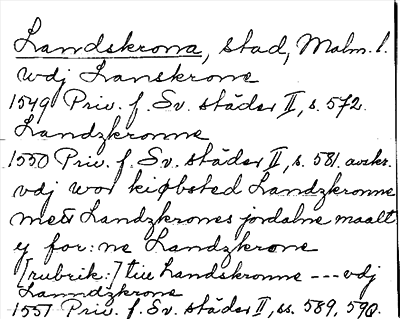 Landskrona, stad, Malm. l.
wdj Lanskrone
1549 Priv. f. Sv. städer II, s. 572.
Landzkronne
1550 Priv. f. Sv. städer II, s. 581. avskr.
vdj wor kiøbsted Landzkronne
med Landzkrones jordalne maalt
y for: ne Landzkrone
[rubrik:] tiil Landskronne --- vdj
Lanndzkrone
1551 Priv. f. Sv. städer II, ss. 589, 590.